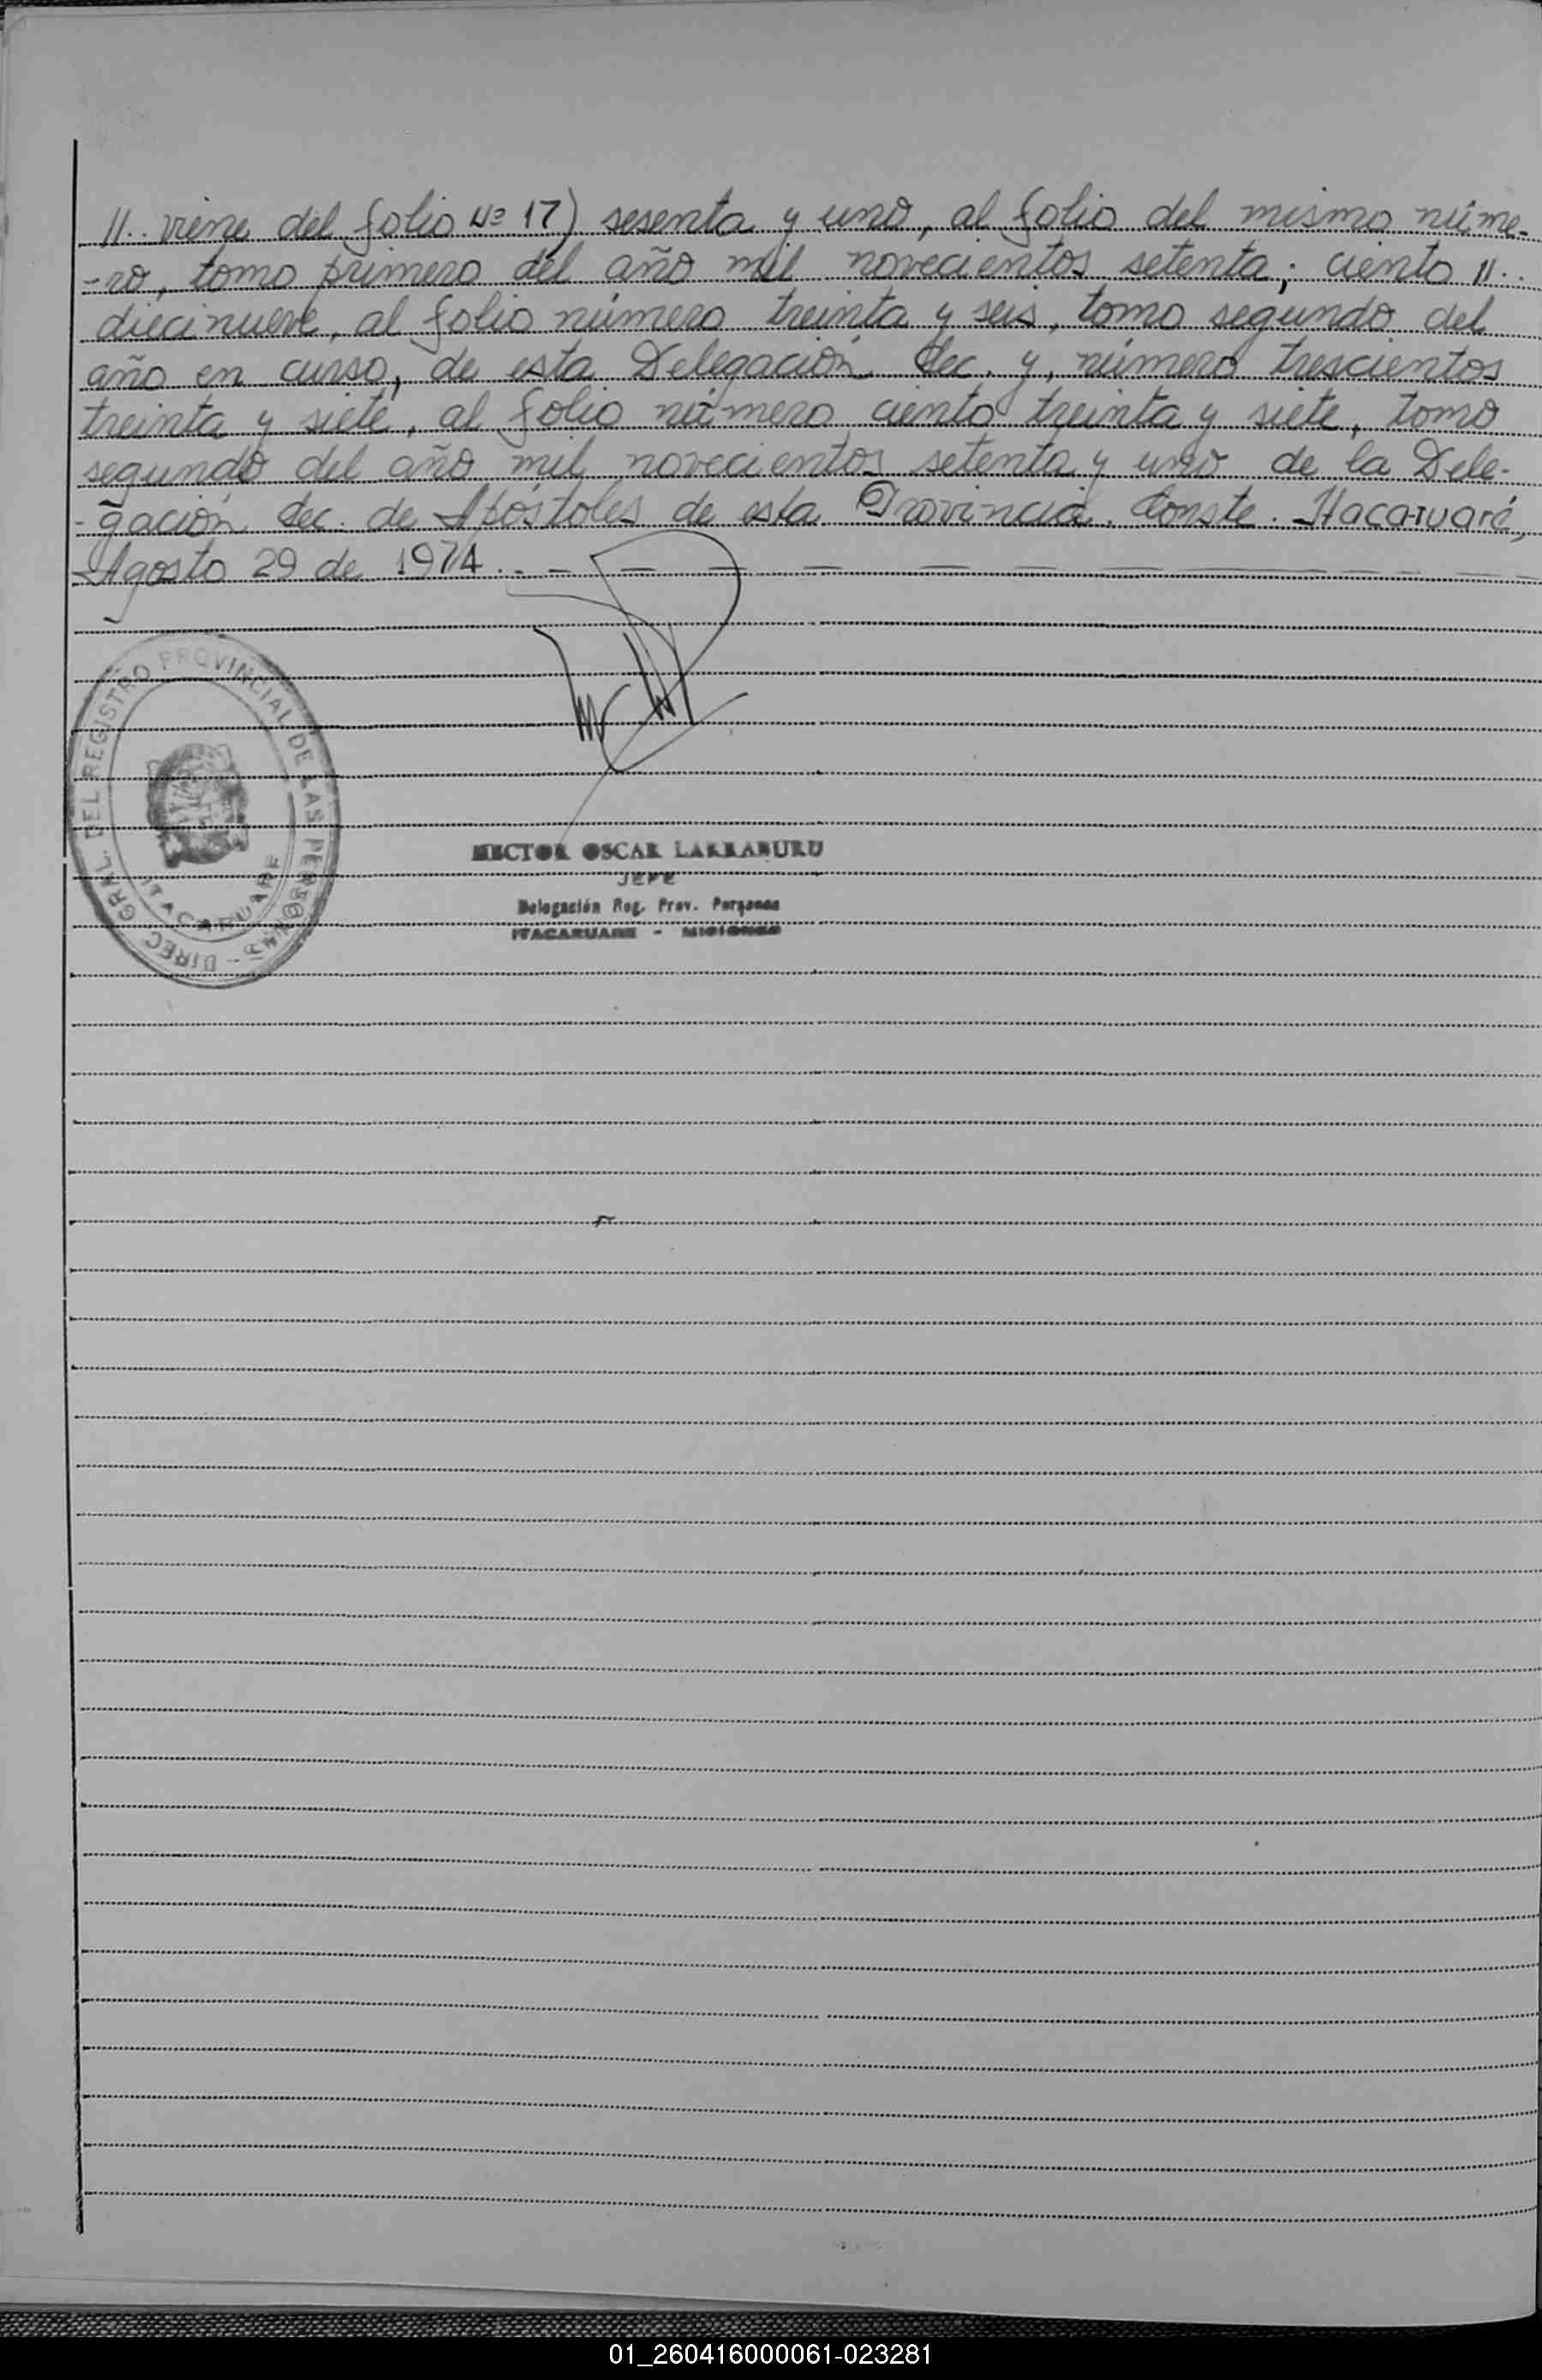 //.. viene del folio Nº 17) sesenta y uno, al folio del mismo núme-
-ro, tomo primero del año mil novecientos setenta; ciento //..
diecinueve, al folio número treinta y seis, tomo segundo del
año en curso, de esta Delegación Sec. y, número trescientos
treinta y siete, al folio número ciento treinta y siete, tomo
segundo del año mil novecientos setenta y uno de la Dele-
-gación Sec. de Apóstoles de esta Provincia. Conste. Itacaruaré,
Agosto 29 de 1974..
DIREC. GRAL. DEL REGISTRO PROVINCIAL DE LAS PERSONAS
ITACARUARE
HECTOR OSCAR LARRABURU
JEFE
Delegación Reg. Prov. Personas
ITACARUARE - MISIONES
01_260416000061-023281